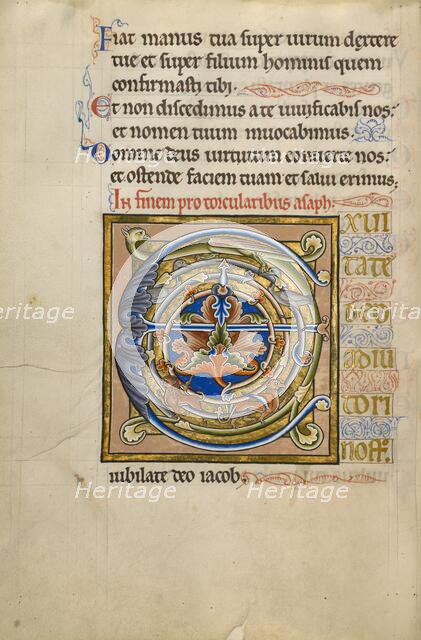 Fiat manus tua super uirum dextere
tue et super filium hominis quem
confirmasti tibi.
Et non discedimus a te uiuificabis nos:
et nomen tuum inuocabimus.
Domine deus uirtutum conuerte nos:
et ostende faciem tuam et salui erimus:
In finem pro torcularibus asaph.
E
XUL
TATE
DEO
ADIU
TORI
NOSTR.
iubilate deo iacob.
Heritage
Heritage
Heritage
Heritage
Heritage
Heritage